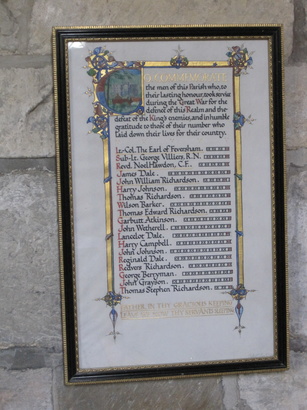 TO COMMEMORATE
the men of this Parish who, to
their lasting honour, took service
during the Great War for the
defence of this Realm and the
defeat of the King's enemies, and in humble
gratitude to those of their number who
laid down their lives for their country.
Lt-Col. The Earl of Feversham.
Sub-Lt. George Villiers, R.N.
Revd. Noel Hawdon, C.F.
James Dale.
John William Richardson.
Harry Johnson.
Thomas Richardson.
Wilson Barker.
Thomas Edward Richardson.
Garbutt Atkinson.
John Wetherill.
Lancelot Dale.
Harry Campbell.
John Johnson.
Reginald Dale.
Reeves Richardson.
George Berryman.
John Grayson.
Thomas Stephen Richardson.
FATHER IN THY GRACIOUS KEEPING
LEAVE WE NOW THY SERVANT SLEEPING